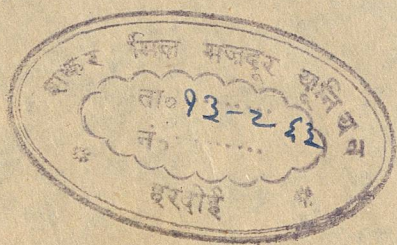 शकर मिल मजदूर यूनियन
ता० १३-८६३
नं०
हरदोई